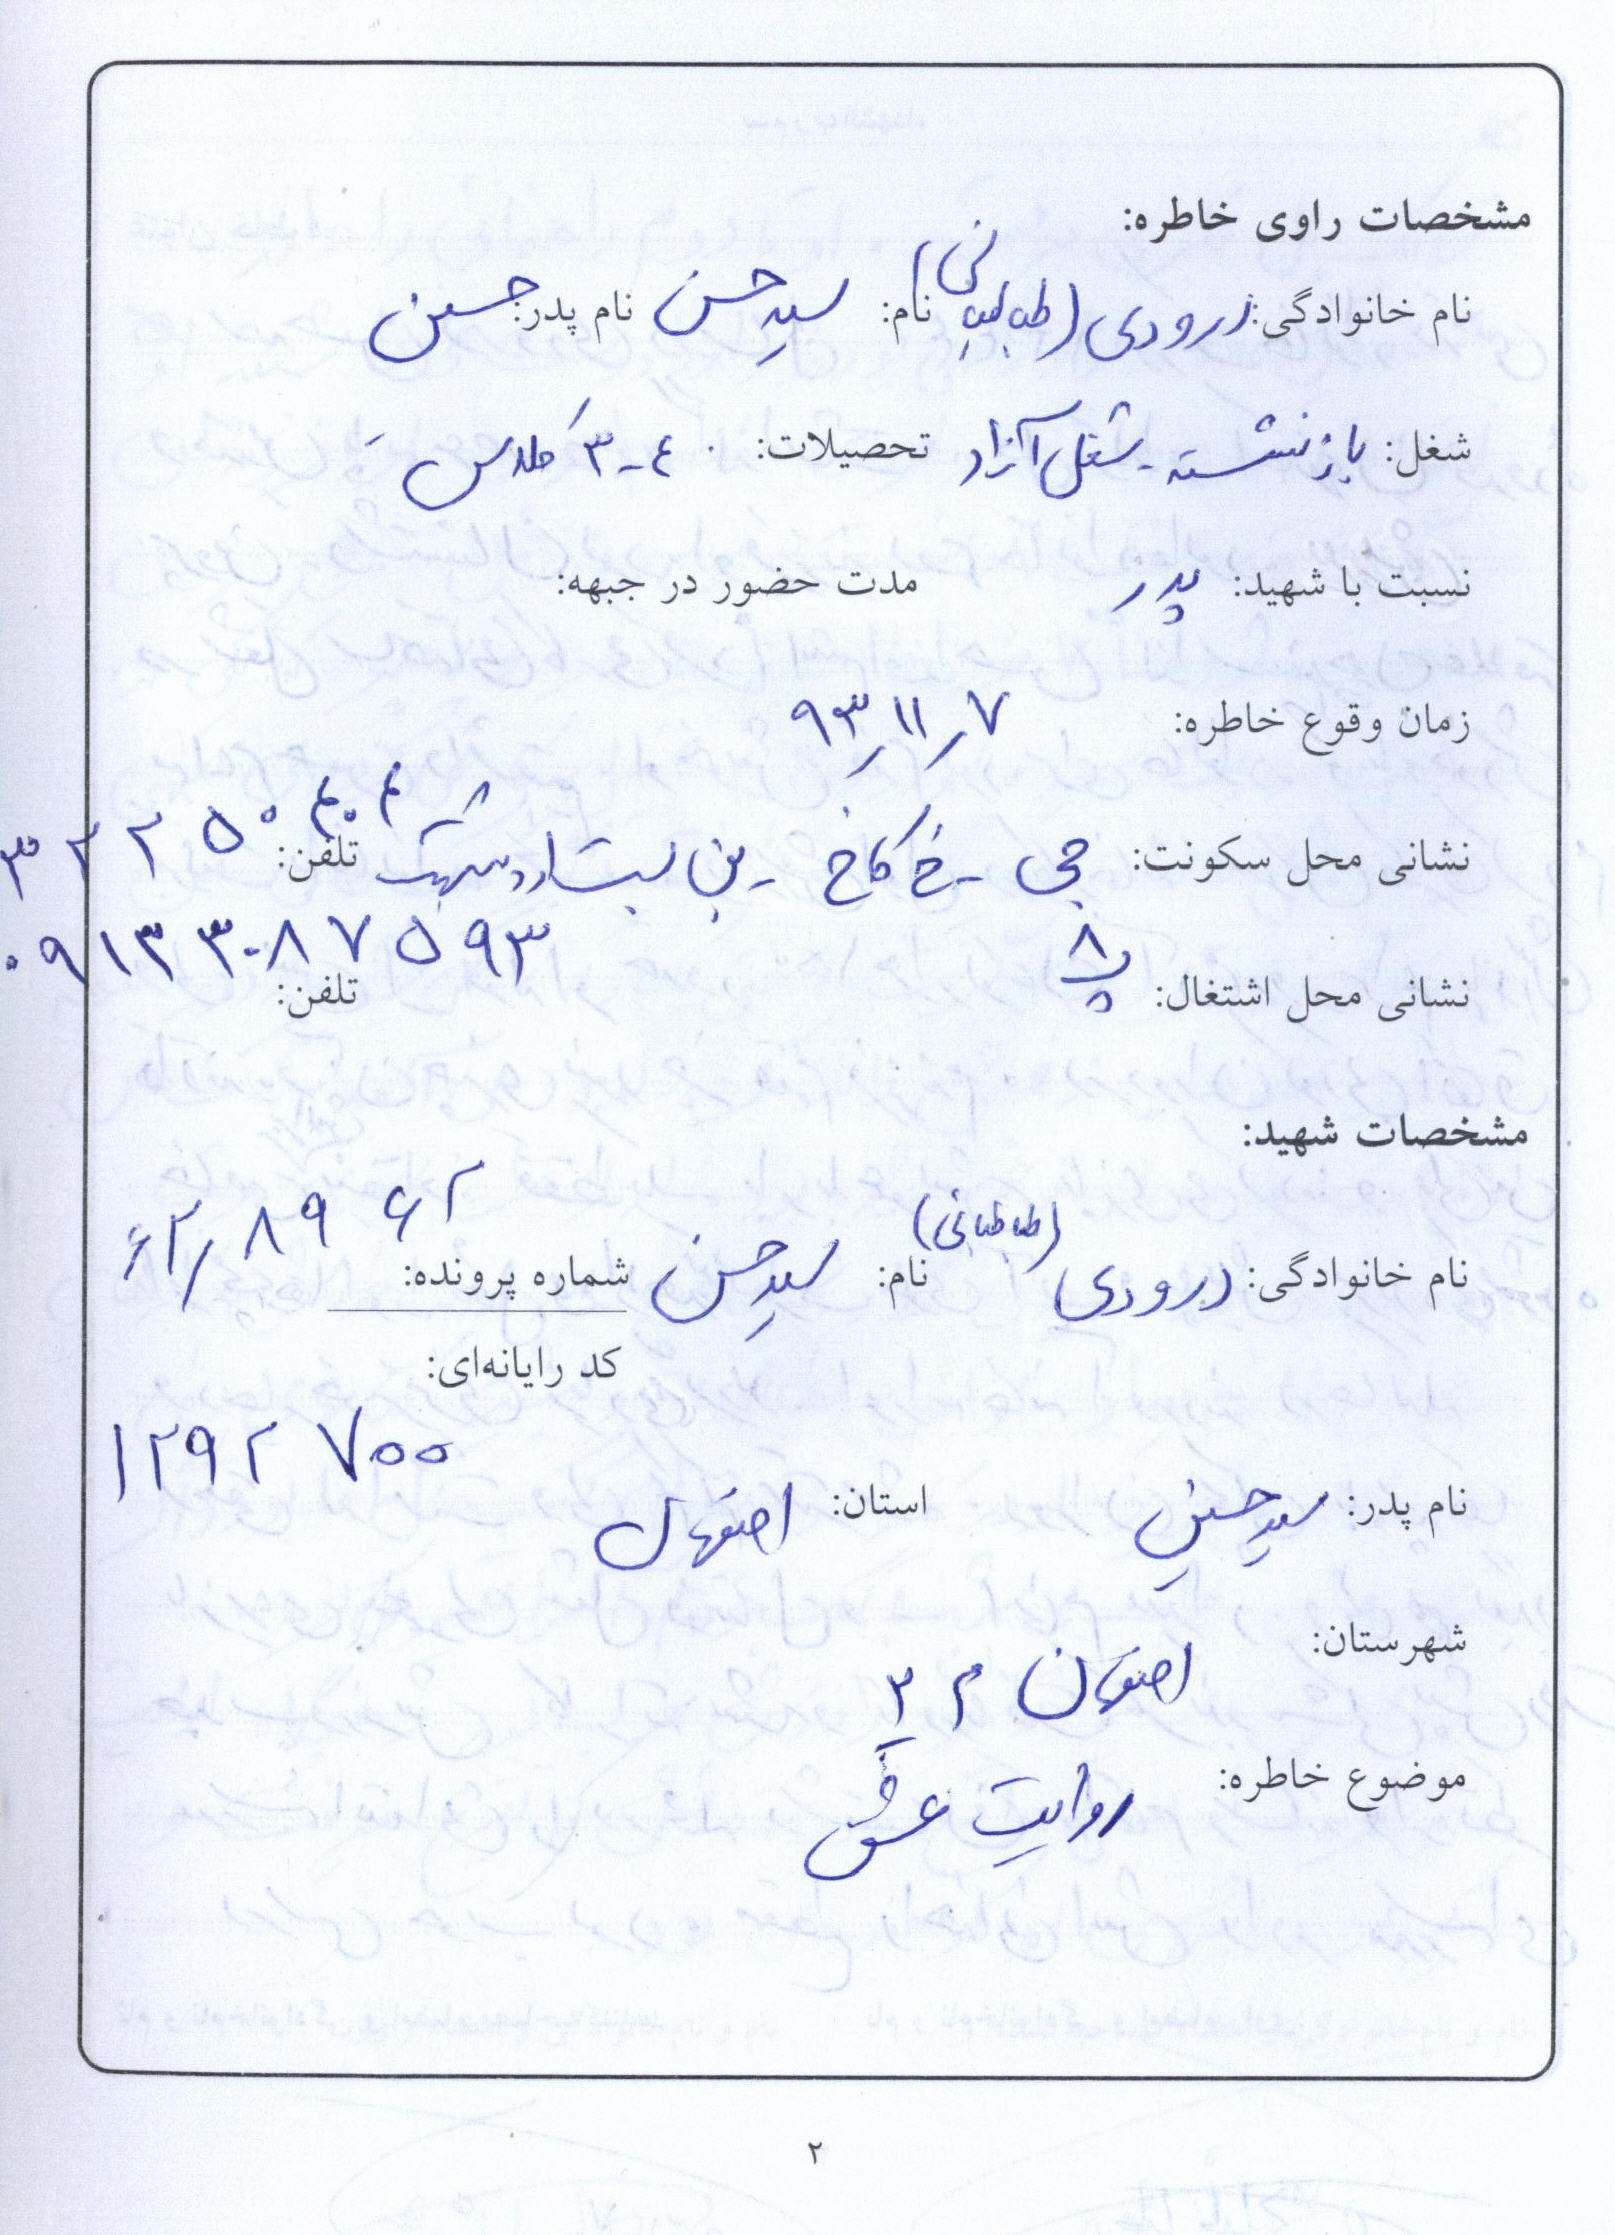 مشخصات راوی خاطره:
نام خانوادگی: درودی (طباطبائی) نام: سید حسن نام پدر: حسین
شغل: بازنشسته - شغل آزاد تحصیلات: ۳-۴ کلاس
نسبت با شهید: پدر مدت حضور در جبهه:
زمان وقوع خاطره: ۹۳/۱۱/۷
نشانی محل سکونت: جی - خ کاخ - بن بست اردیبهشت تلفن: ۳۲۲۵۰۴۰۴
پ ۸ ۰۹۱۳۳۰۸۷۵۹۳
نشانی محل اشتغال: تلفن:
مشخصات شهید:
نام خانوادگی: درودی (طباطبائی) نام: سید حسن شماره پرونده: ۶۲/۸۹۶۲
کد رایانه‌ای:
۱۲۹۲۷۰۰
نام پدر: سید حسین استان: اصفهان
شهرستان: اصفهان
موضوع خاطره: روایت عشق
۲